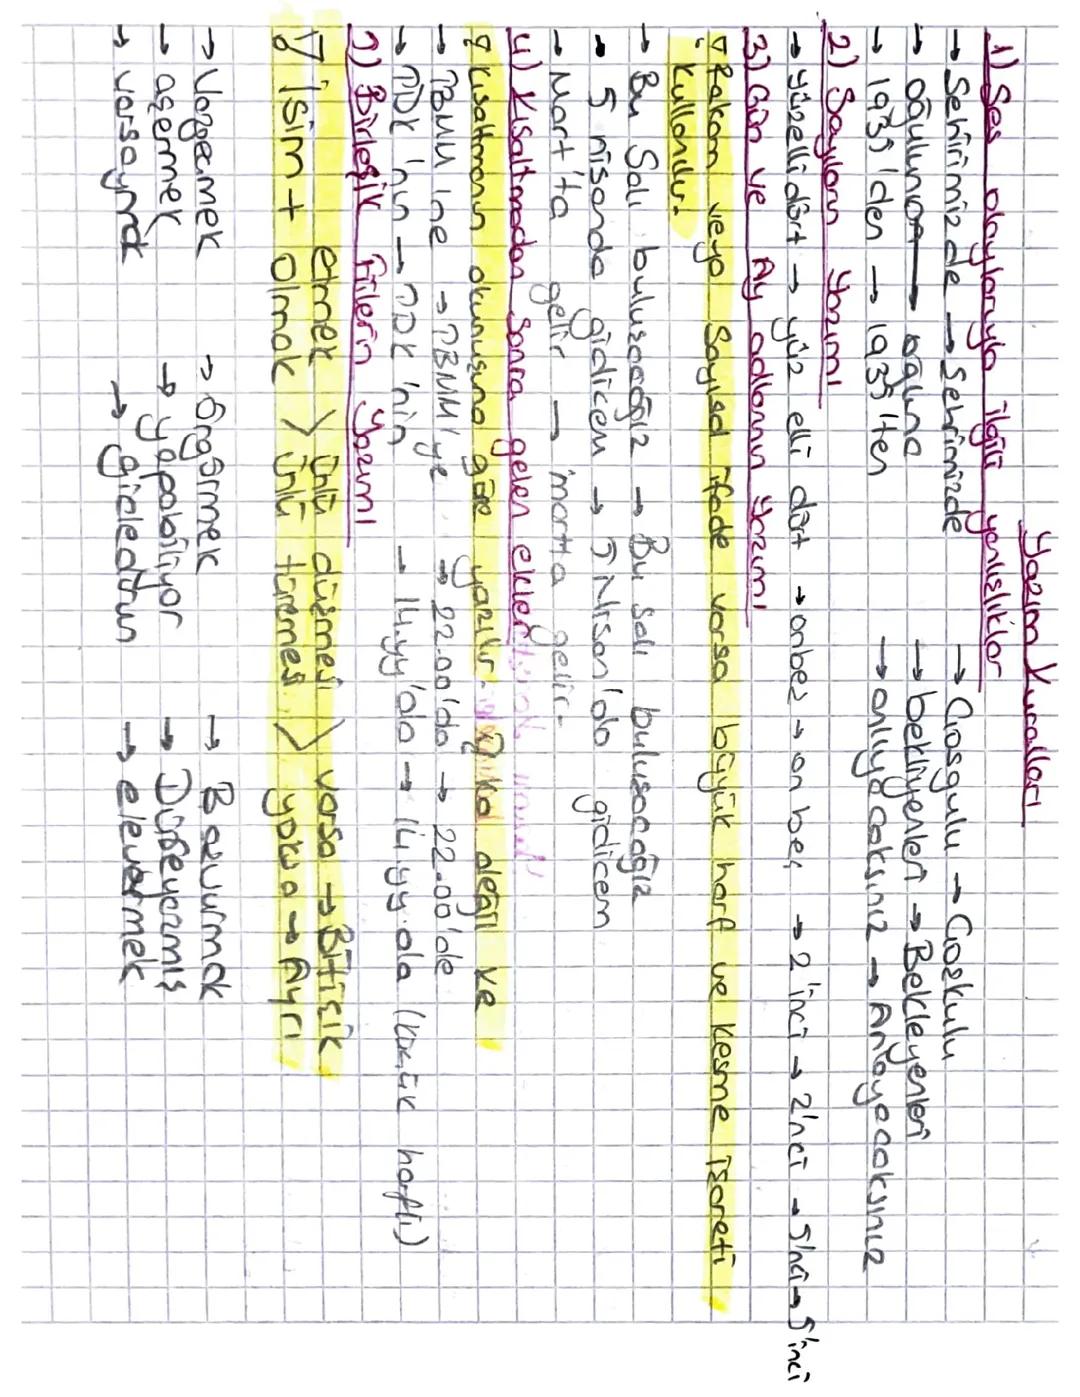 Yazım Kuralları
1) Ses olaylarıyla ilgili yanlışlıklar
→ Şehirimizde → Şehrimizde → Coşgulu → Coşkulu
→ oğuluna → oğluna → bekliyenleri → Bekleyenleri
→ 1935'den → 1935'ten → anlıyacaksınız → Anlayacaksınız
2) Sayıların Yazımı
→ yüzellidört → yüz elli dört → onbeş → on beş → 2'inci → 2'nci → 5'nci → 5'inci
3) Gün ve Ay adlarının Yazımı
∇ Rakam veya Sayısal ifade varsa büyük harf ve kesme işareti
kullanılır.
→ Bu Salı buluşacağız → Bu salı buluşacağız
→ 5 nisanda gidicem → 5 Nisan'da gidicem
→ Mart'ta gelir → martta gelir.
4) Kısaltmadan Sonra gelen ekler
∇ Kısaltmanın okunuşuna göre yazılır. değil ve
→ TBMM'ine → TBMM'ye → 22.00'da → 22.00'de
→ TDK'nun → TDK'nin → 14.yy'da → 14.yyda (küçük harfli)
5) Birleşik Fiilerin Yazımı
∇ İsim + etmek > ünlü düşmesi > varsa → Bitişik
olmak ünlü türemesi > yoksa → Ayrı
→ Vazgeçmek → Öngörmek → Başvurmak
→ aşermek → yapabiliyor → Düşeyazmış
→ varsaymak → gideledurun → elevermek